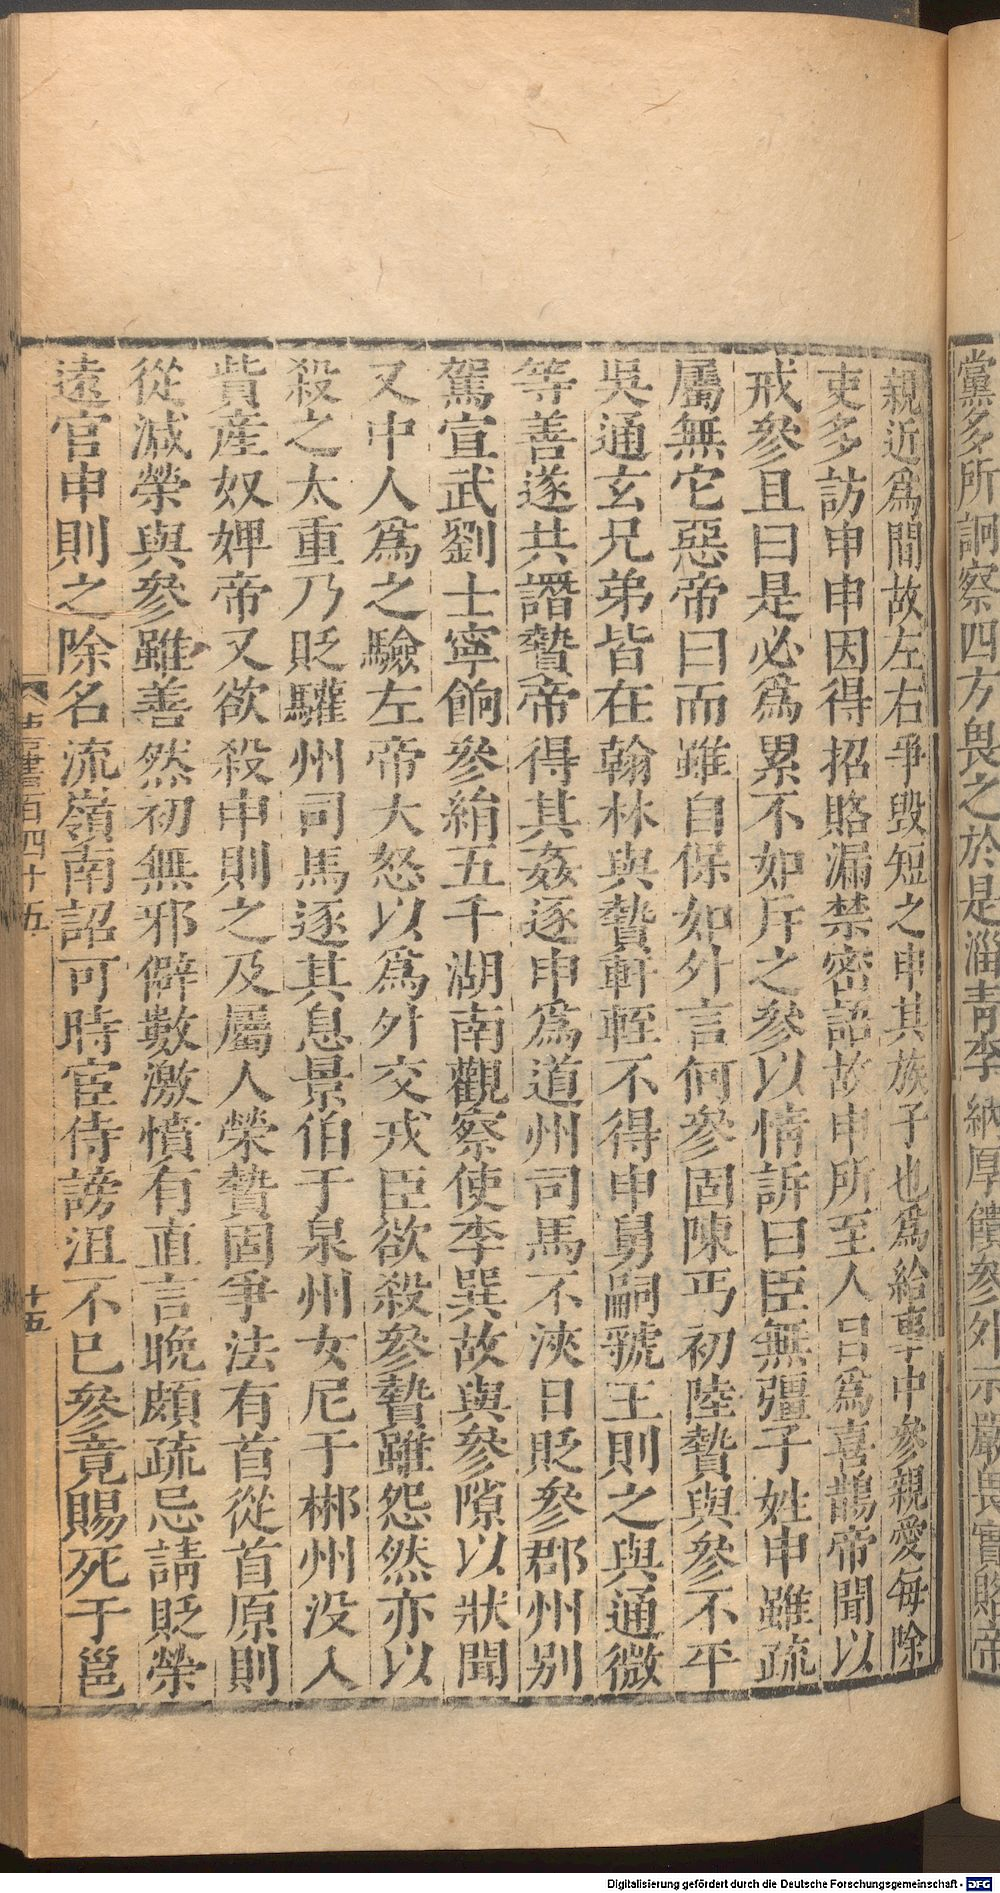 黨多所詗察四方畏之於是淄青李納厚饋參外示嚴畏實賂帝
親近爲間故左右爭毀短之申其族子也爲給事中參親愛每除
吏多訪申申因得招賂漏禁密語故申所至人目爲喜鵲帝聞以
戒參且曰是必爲累不如斥之參以情訴曰臣無彊子姓申雖疏
屬無它惡帝曰而雖自保如外言何參固陳丐初陸贄與參不平
吳通玄兄弟皆在翰林與贄軒輊不得申舅嗣虢王則之與通微
等善遂共譖贄帝得其姦逐申爲道州司馬不浹日貶參郡州別
駕宣武劉士寧餉參絹五千湖南觀察使李巽故與參隙以狀聞
又中人爲之驗左帝大怒以爲外交戎臣欲殺參贄雖怨然亦以
殺之太重乃貶驩州司馬逐其息景伯于泉州女尼于郴州没入
貲產奴婢帝又欲殺申則之及屬人榮贄固爭法有首從首原則
從減榮與參雖善然初無邪僻數激憤有直言晩頗疏忌請貶榮
遠官申則之除名流嶺南詔可時宦侍謗沮不已參竟賜死于邕
書百四十五
十五
Digitalisierung gefördert durch die Deutsche Forschungsgemeinschaft - DFG